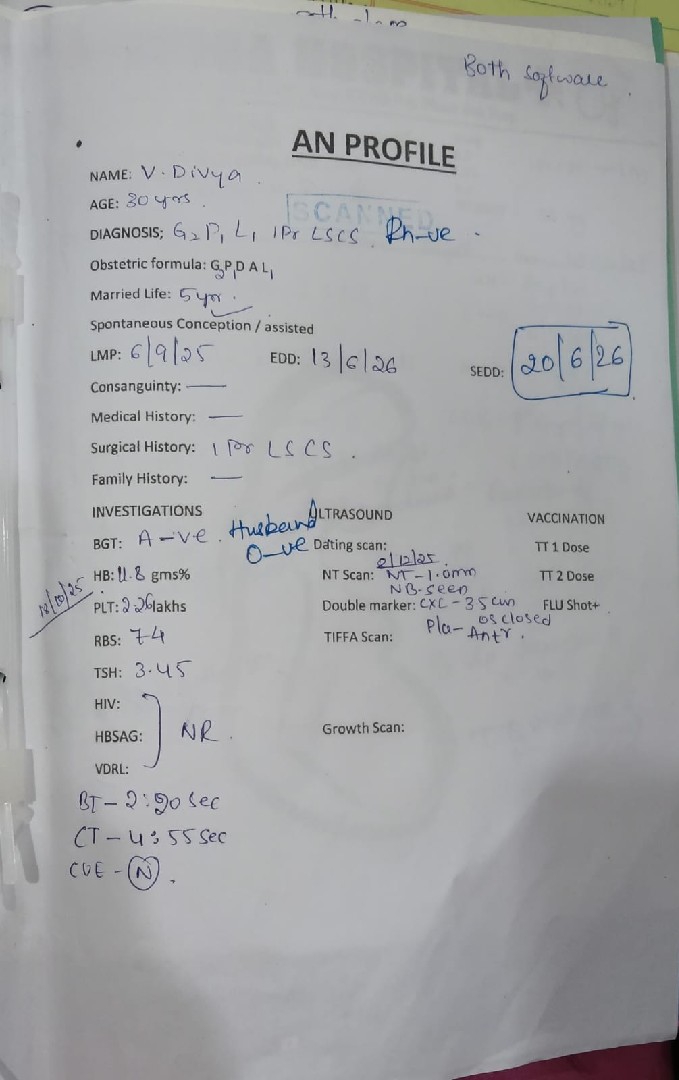 Both software.
AN PROFILE
NAME: V. Divya
AGE: 30 yrs.
SCANNED
DIAGNOSIS; G2P1L1 1Pr LSCS Rh-ve.
Obstetric formula: G2P1D A L1
Married Life: 5 yr.
Spontaneous Conception / assisted
LMP: 6/9/25 EDD: 13/6/26 SEDD: 20/6/26
Consanguinty: —
Medical History: —
Surgical History: 1 Pr LSCS.
Family History: —
INVESTIGATIONS ULTRASOUND VACCINATION
BGT: A -ve. Husband O-ve Dating scan: TT 1 Dose
18/10/25 HB: 11.8 gms% NT Scan: 2/12/25. NT-1.0mm NB-seen TT 2 Dose
PLT: 2.26 lakhs Double marker: CXL-3.5cm os closed FLU Shot+
RBS: 74 TIFFA Scan: Pla- Antr.
TSH: 3.45
HIV:
HBSAG: NR. Growth Scan:
VDRL:
BT-2:20 Sec
CT-4:55 Sec
CUE-N.